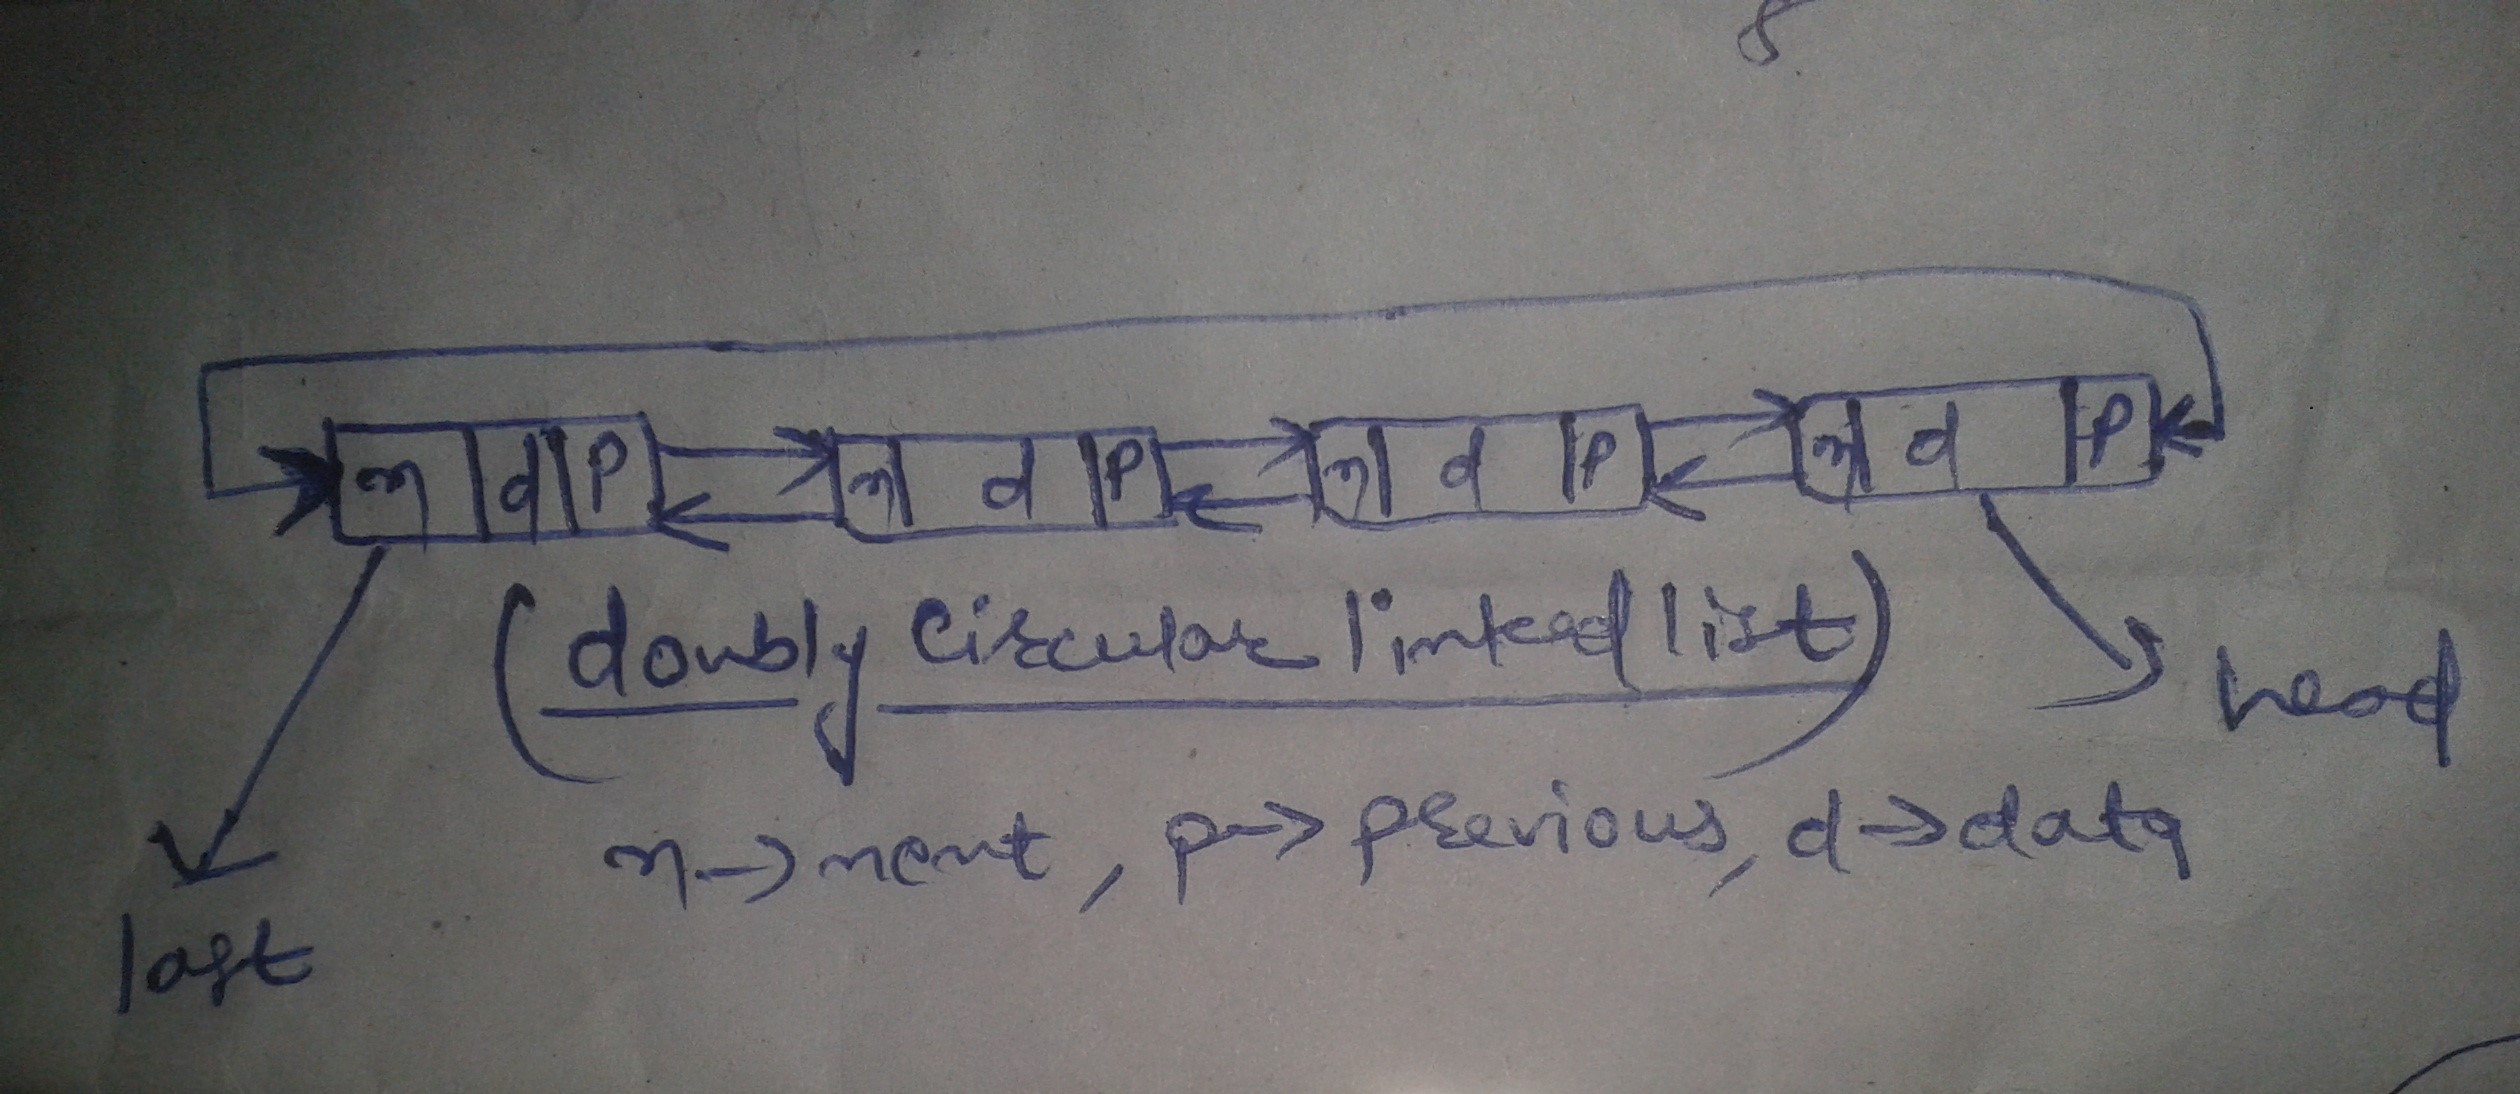 8
n d p n d p n d p n d p
(doubly circular linked list)
head
n -> next, p -> previous, d -> data
last